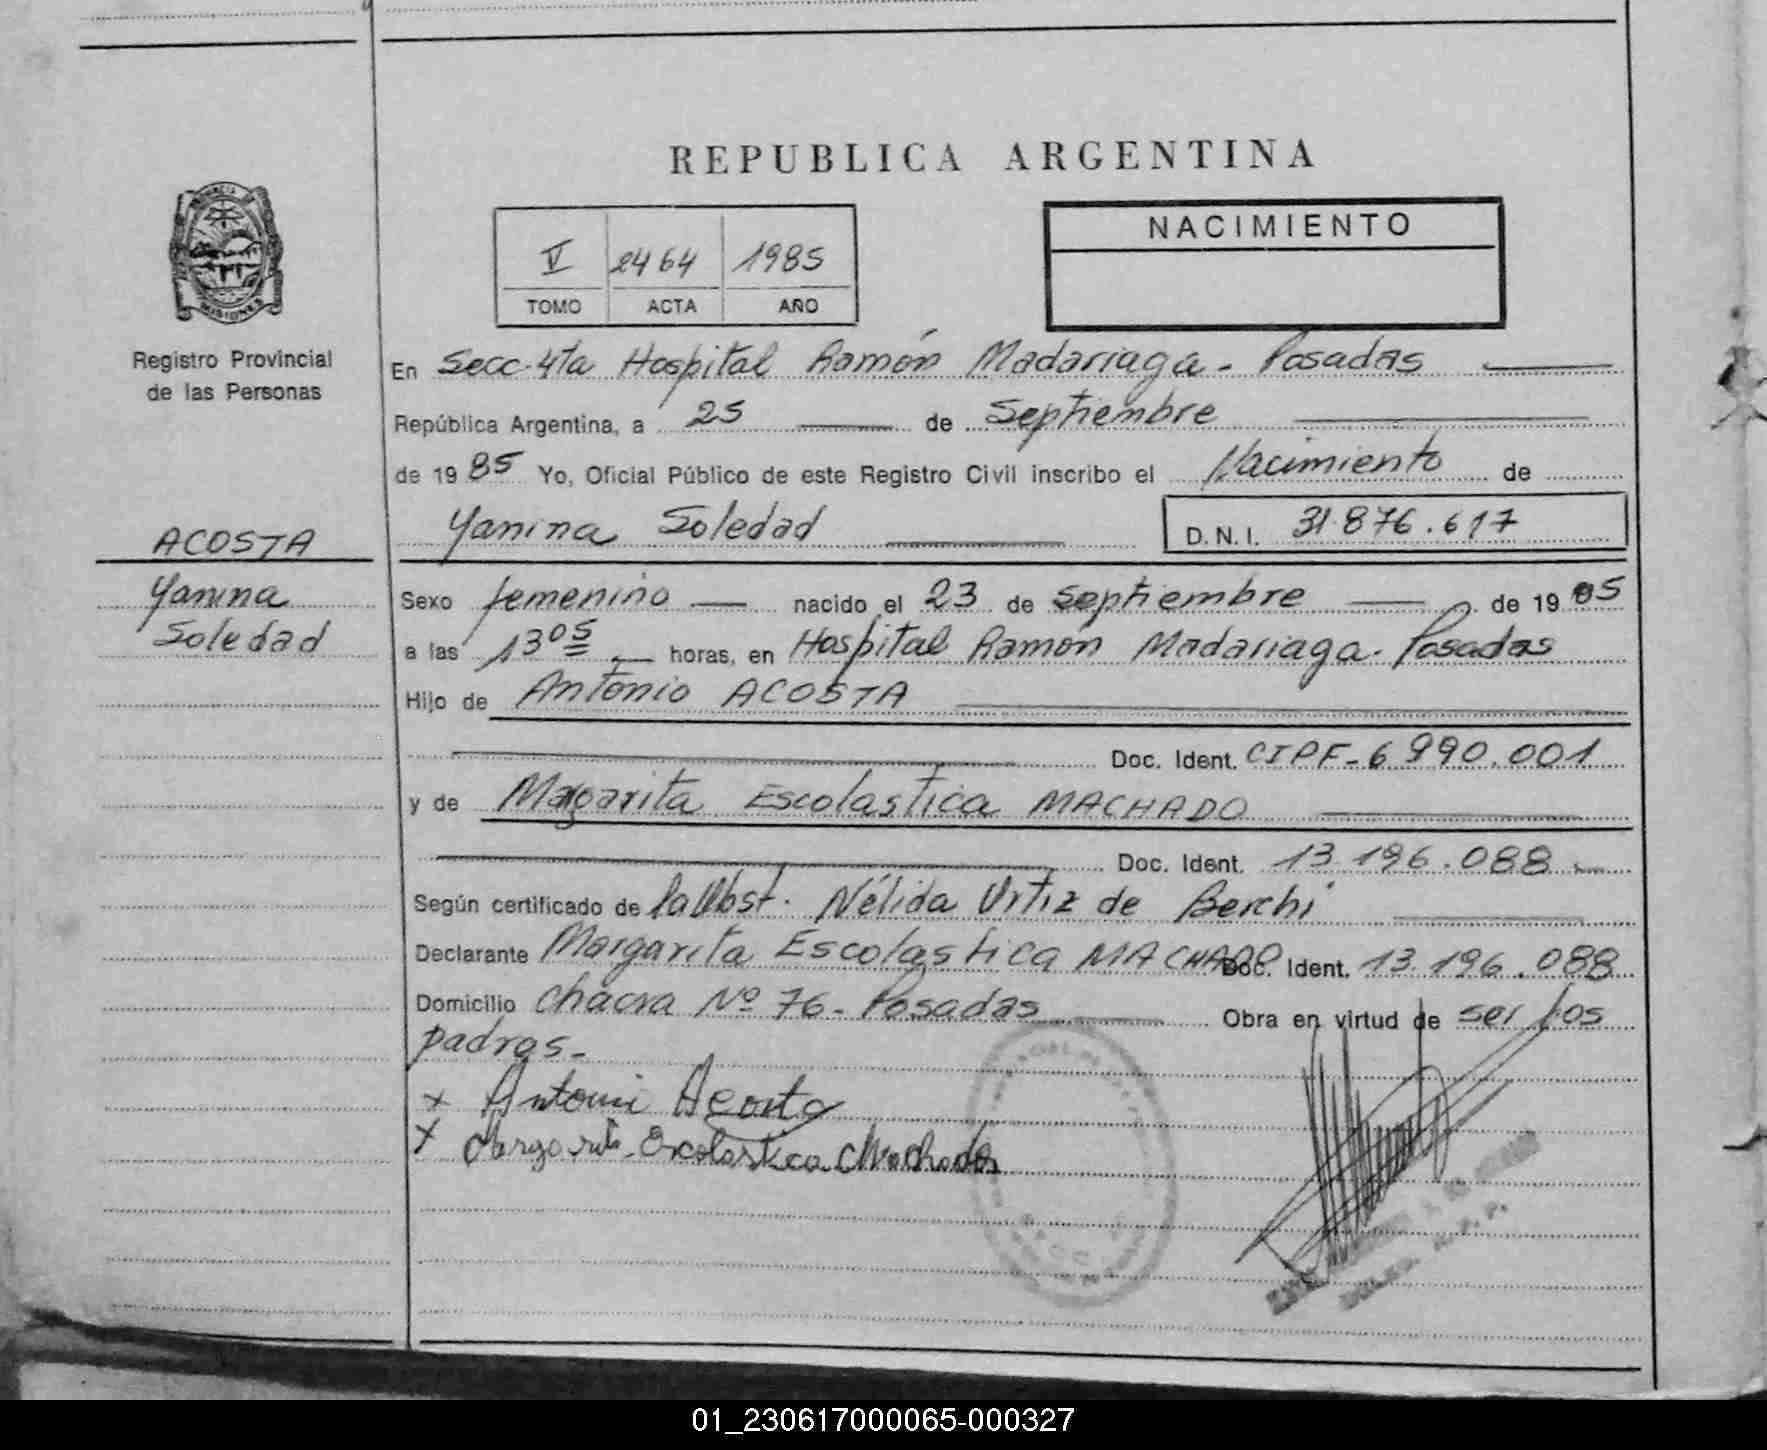 REPUBLICA ARGENTINA
V 2464 1985
TOMO ACTA AÑO
NACIMIENTO
MISIONES
Registro Provincial
de las Personas
En Secc. 4ta Hospital Ramón Madariaga - Posadas
República Argentina, a 25 de Septiembre
de 1985 Yo, Oficial Público de este Registro Civil inscribo el Nacimiento de
Yanina Soledad D.N.I. 31.876.617
ACOSTA
Yanina
Soledad
Sexo femenino nacido el 23 de Septiembre de 1985
a las 13 05 horas, en Hospital Ramón Madariaga - Posadas
Hijo de Antonio ACOSTA
Doc. Ident. CIPF - 6 990.001
y de Margarita Escolastica MACHADO
Doc. Ident. 13 196.088
Según certificado de la Obst. Nélida Urtiz de Berchi
Declarante Margarita Escolastica MACHADO Doc. Ident. 13 196.088
Domicilio Chacra Nº 76 - Posadas Obra en virtud de ser los
padres -
x Antonio Acosta
x Margarita Escolastica Machado
01_230617000065-000327